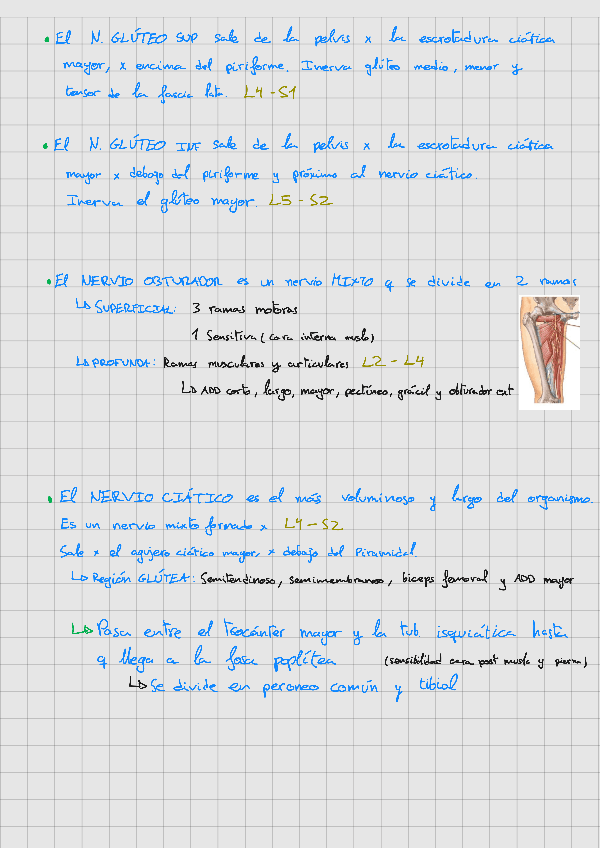 • El N. GLÚTEO SUP sale de la pelvis x la escotadura ciática
mayor, x encima del piriforme. Inerva glúteo medio, menor y
tensor de la fascia lata. L4-S1
• El N. GLÚTEO INF sale de la pelvis x la escotadura ciática
mayor x debajo del piriforme y próximo al nervio ciático.
Inerva el glúteo mayor. L5-S2
• El NERVIO OBTURADOR es un nervio MIXTO q se divide en 2 ramas
↳ SUPERFICIAL: 3 ramas motoras
1 Sensitiva (cara interna muslo)
↳ PROFUNDA: Ramas musculares y articulares L2-L4
↳ ADD corto, largo, mayor, pectíneo, grácil y obturador ext
• El NERVIO CIÁTICO es el más voluminoso y largo del organismo.
Es un nervio mixto formado x L4-S2
Sale x el agujero ciático mayor, x debajo del Piramidal.
↳ Región GLÚTEA: Semitendinoso, semimembranoso, biceps femoral y ADD mayor
↳ Pasa entre el trocánter mayor y la tub. isquiática hasta
q llega a la fosa poplítea (sensibilidad cara post muslo y pierna)
↳ Se divide en peroneo común y tibial